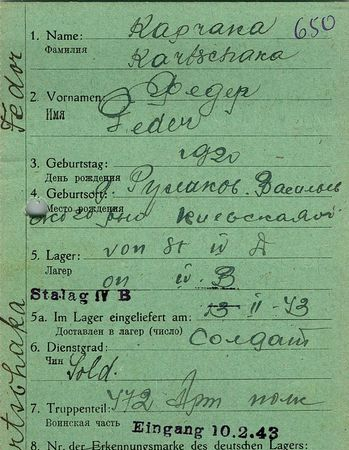 650
1. Name: Карчака
Фамилия Kartschaka
2. Vornamen: Федер
Имя Feder
3. Geburtstag: 1920
День рождения
4. Geburtsort: с. Русаков. Васильев
Место рождения Киевская об
5. Lager: von St IV A
Лагерь on IV B
Stalag IV B
5a. Im Lager eingeliefert am: 13 II - 43
Доставлен в лагер (число)
6. Dienstgrad: Солдат
Чин Sold.
7. Truppenteil: 472 Арт полк
Воинская часть
Eingang 10.2.43
8. Nr. der Erkennungsmarke des deutschen Lagers:
Fedor
rtschaka